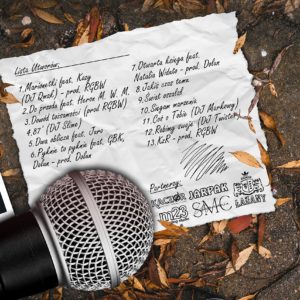 Lista Utworów:
1. Marionetki feat. Kazy
(DJ Quick) - prod. RGBW
2. Do przodu feat. Heron M. W. M.
3. Dowód tożsamości (prod RGBW)
4. 87' (DJ Slime)
5. Dwa oblicza feat. Juro
6. Pięknie to pięknie feat. GBK,
Dolun - prod. Dolun
7. Otwarta księga feat.
Natalia Widuto - prod. Dolun
8. Jakiś czas temu
9. Świat oszalał
10. Sięgam marzenie
11. Coś o Tobie (DJ Markowy)
12. Robimy swoje (DJ Twister)
13. KsR - prod. RGBW
Partnerzy:
JARPAK
m23
SAAC
ŁABAŃY